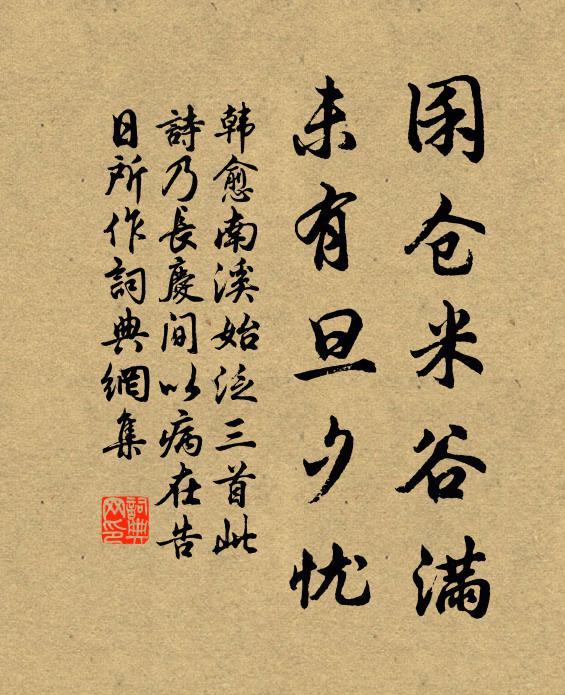 囷仓米谷满
未有旦夕忧
韩愈南溪始泛三首此
詩乃長慶间以病在告
日所作詞典網集
詞典
网印